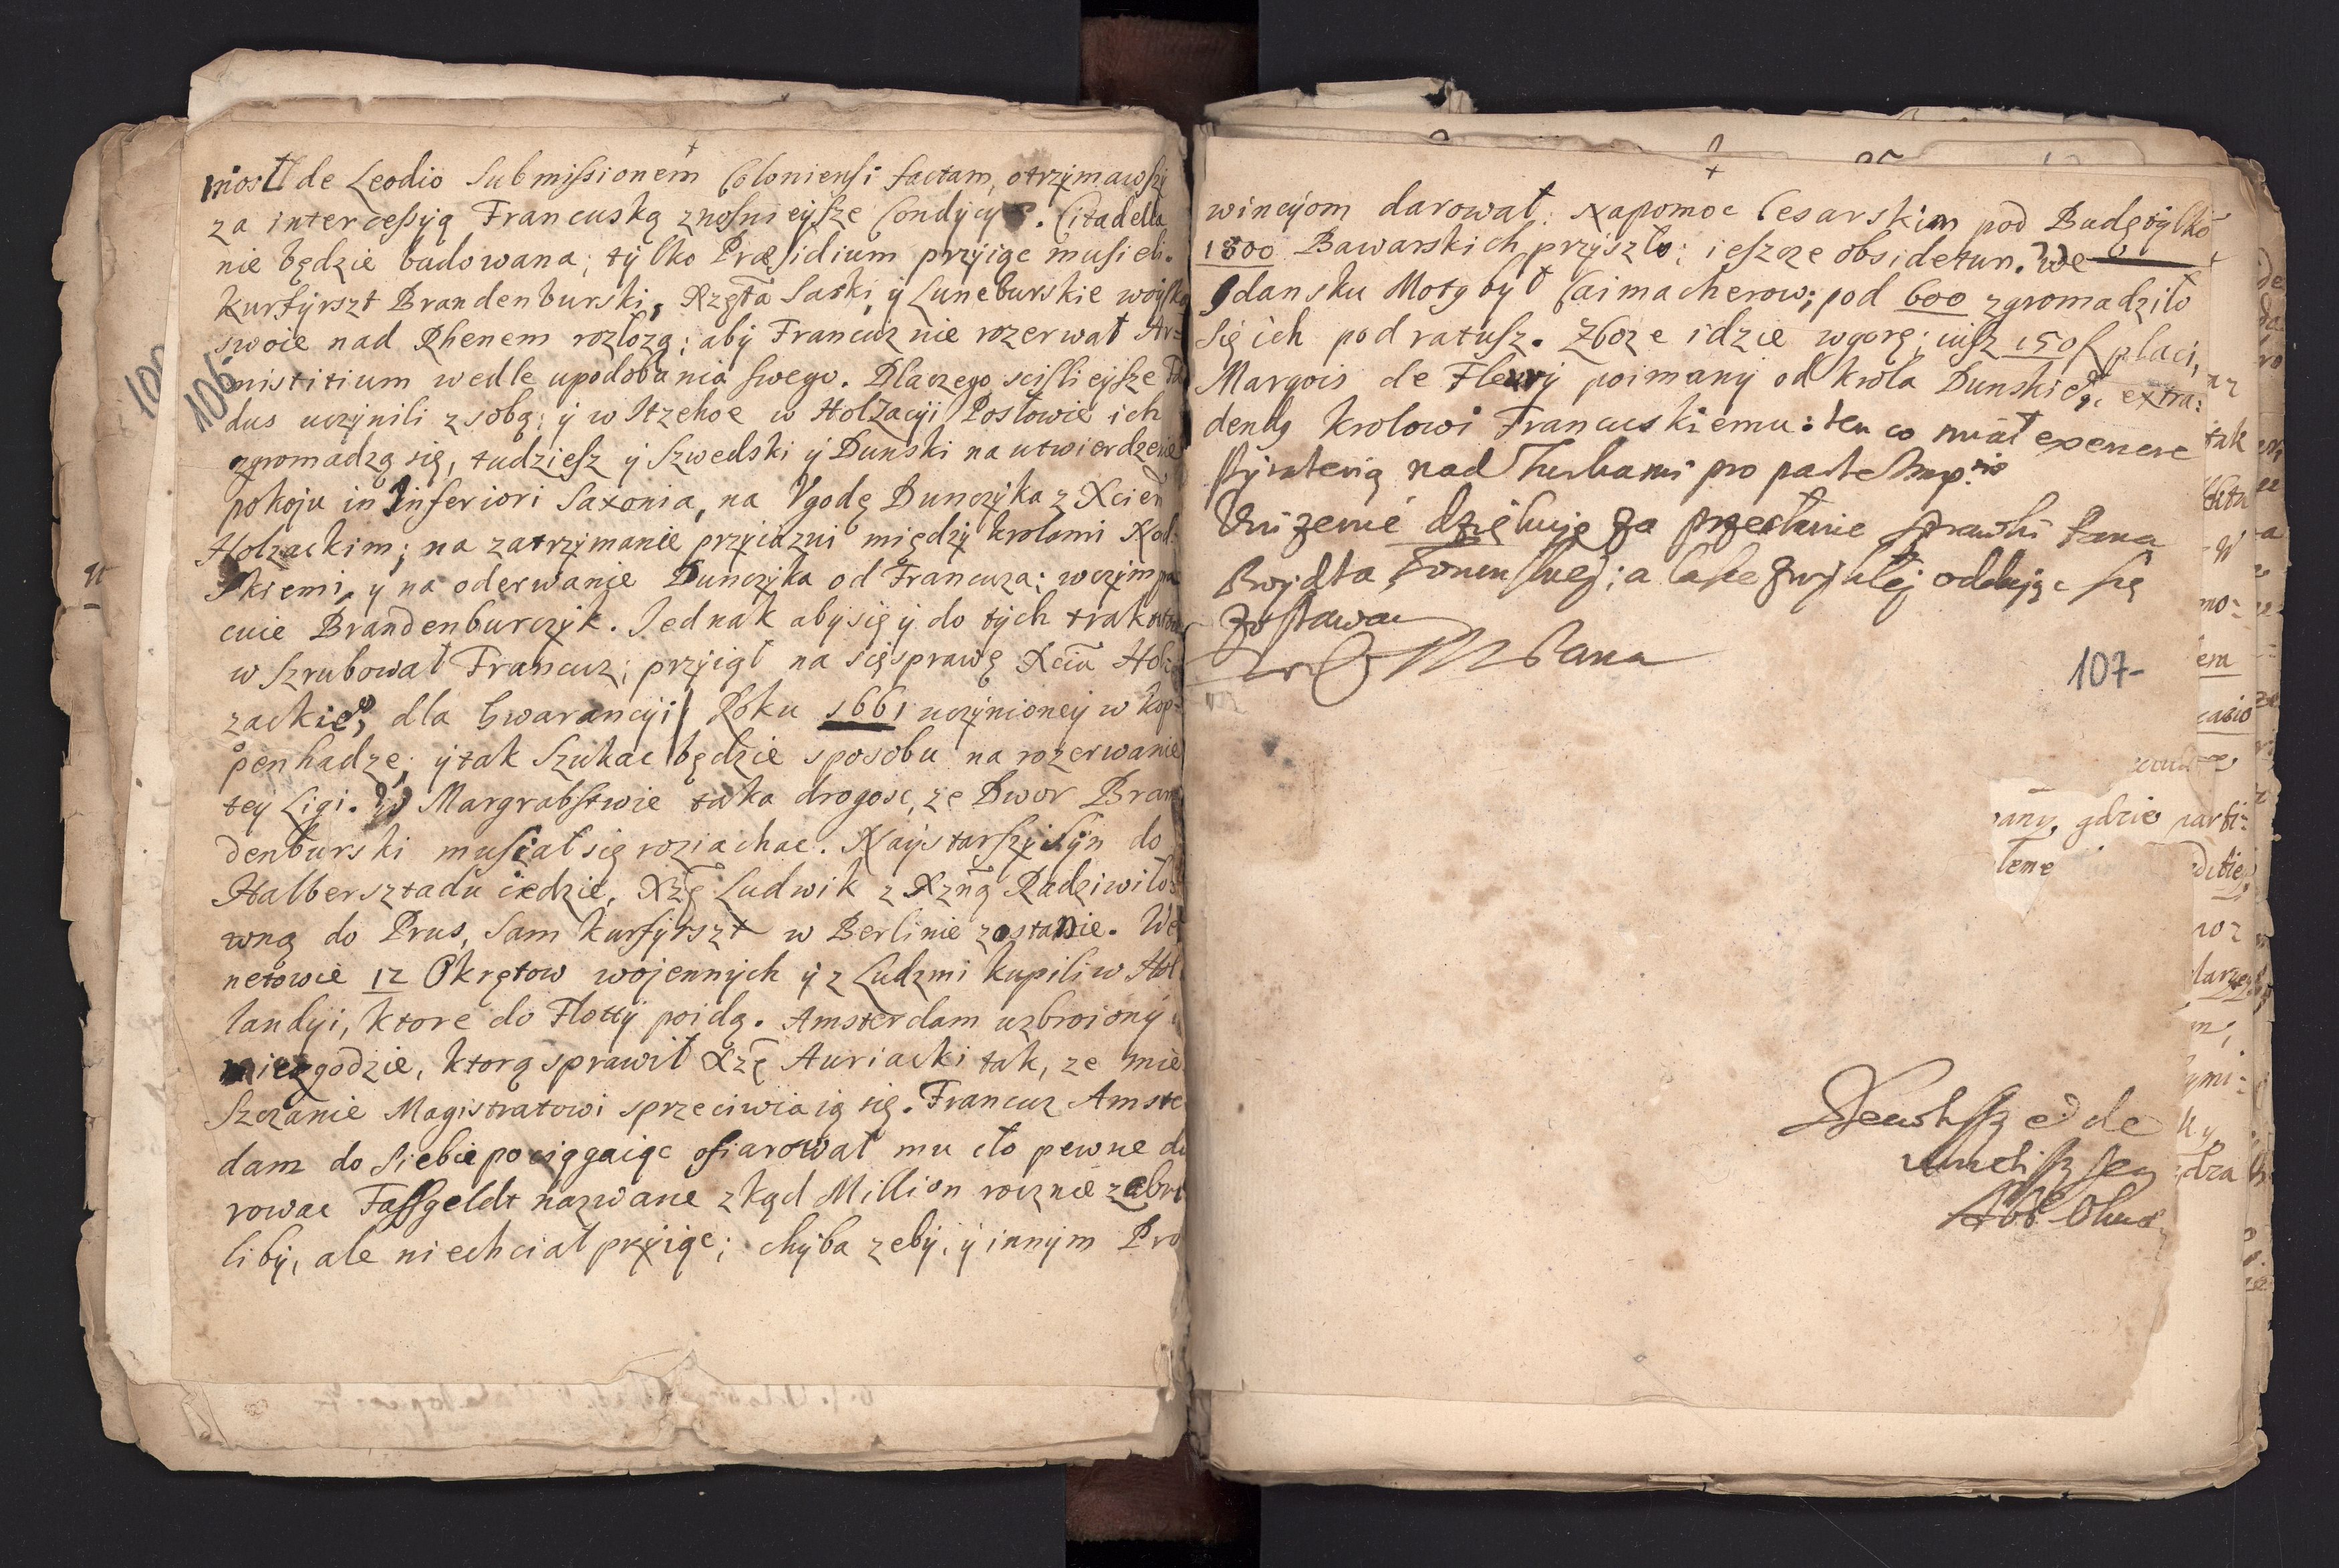 niosł de Leodio Submissionem Coloniensi factam, otrzymawszy
za intercessyą Francuską znosnieysze Condycye. Citadella
nie będzie budowana; tylko Præsidium przyiąc musieli.
Kurfyrszt Brandenburski, Xzęta Saski, y Luneburskie woyska
swoie nad Rhenem rozłozą; aby Francuz nie rozerwał Ar=
mistitium wedle upodobania swego. Dlaczego scisleysze Fœ
dus uczynili z sobą; y w Itzehoe w Holzacyi Posłowie ich
zgromadzą się, tudziesz y Szwedski y Dunski na utwierdzenie
pokoju in Inferiori Saxonia, na Vgodę Dunczyka z Xciem
Holzackim; na zatrzymanie przyiazni między krolami Nod:
skiemi, y na oderwanie Dunczyka od Francuza; w czym pra
cuie Brandenburczyk. Jednak aby się y do tych traktatow
w Szrubował Francuz; przyiął na się sprawę Xcia Hol
zackieo, dla Gwarancyi Roku 1661 uczynioney w Kop=
penhadze; y tak Szukac będzie sposobu na rozerwanie
tey Ligi. W Margrabstwie taka drogosc, ze Dwor Bran
denburski musiał się roziachac. Naystarszy Syn do
Halbersztadu iedzie, Xzę Ludwik z Xzną Radziwiło
wną do Prus, Sam Kurfyrszt w Berlinie zostanie. We
netowie 12 Okrętow wojennych y z Ludzmi kupili w Hol
landyi, ktore do Flotty poidą. Amsterdam uzbroiony
niezgodzie, ktorą sprawił Xzę Auriacki tak, ze mie
Szczanie Magistratowi sprzeciwiaią się. Francuz Amste
dam do siebie pociągaiąc ofiarował mu cło pewne da
rowac Fassgeldt nazwane zkąd Million rocznie zabra
liby, ale niechciał przyiąc; chyba zeby, y innym Pro
106
wincyom darował. Napomoc Cesarskim pod Budę tylko
1800 Bawarskich przyszło; ieszcze obsidetur. We
Gdansku Moty był Raimacherow; pod 600 zgromadziło
się ich pod ratusz. Zboze idzie w gorę; iusz 150 f płaci,
Marqois de Fleury poimany od krola Dunskieo, extra:
dendy krolowi Francuskiemu: ten co miał exercere
Pyraterią nad Turkami pro parte
Vnizenie dziękuię za przesłanie sprawki Pana
a łasce zwykłej oddaiąc się
Zostawam
WM Pana
107-
gdzie